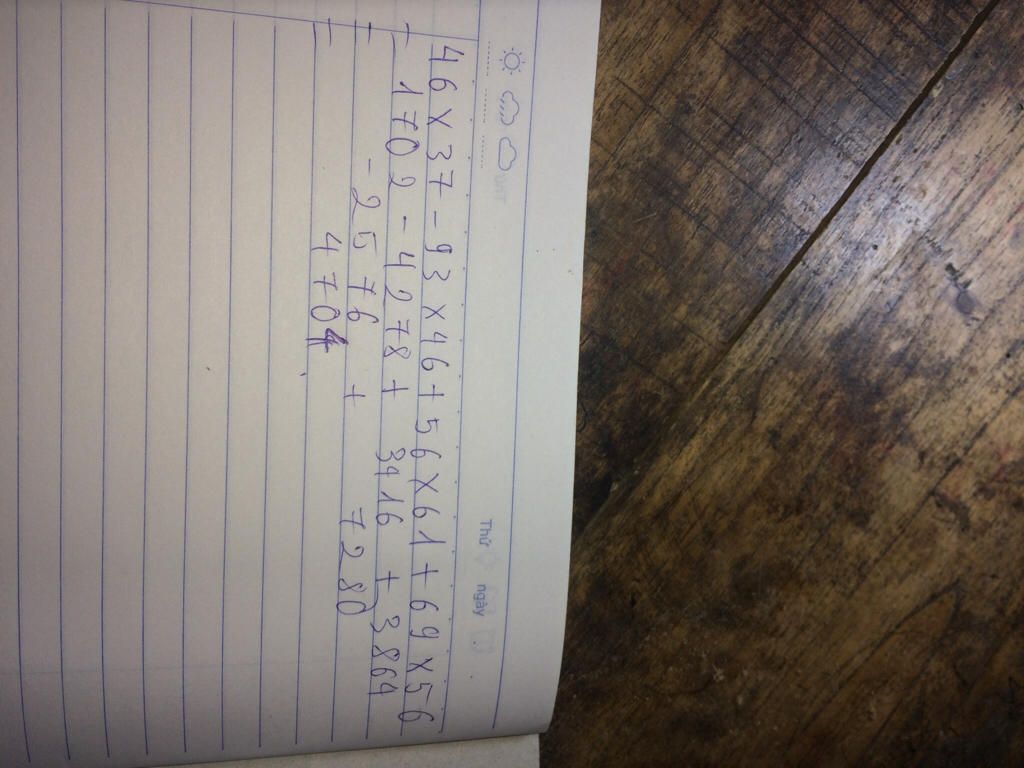 Thứ ngày
46 × 37 - 93 × 46 + 56 × 61 + 69 × 56
= 1702 - 4278 + 3416 + 3864
= - 2576 + 7280
= 4704